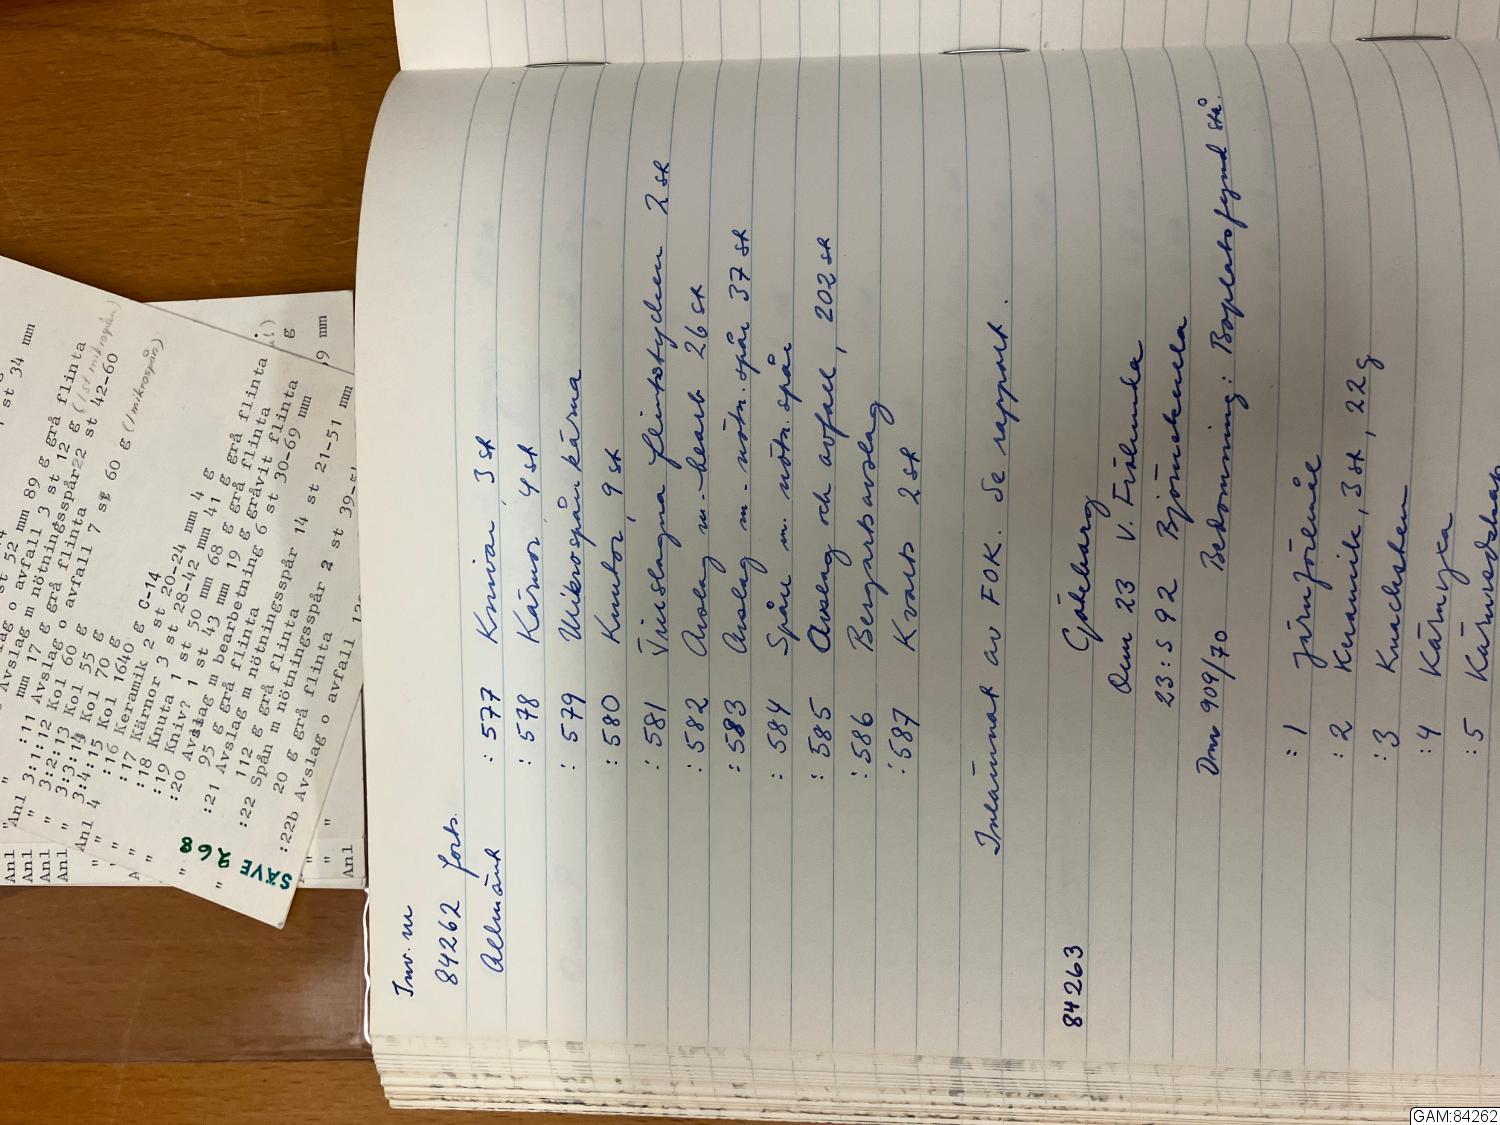 Inv. nr
84262 forts.
Allmänt :577 Knivar 3 st
:578 Kärnor 4 st
:579 Mikrospånkärna
:580 Knutor, 9 st
:581 Vinslagna flintstycken 2 st
:582 Avslag m. bearb 26 st
:583 Avslag m. nötn.spår 37 st
:584 Spån m. nötn.spår
:585 Avslag och avfall, 202 st
:586 Bergartsavslag
:587 Kvarts 2 st
Inlämnat av FOK. Se rapport.
84263 Göteborg
Dnr 909/70 Bedömning: Boplatsfynd stå.
:1 Järnföremål
:2 Keramik, 3 st, 22 g
:3 Knacksten
:4 Kärnyxa
:5
st 34 mm
st 52 mm 89 g grå flinta
Avslag o avfall 3 st 12 g (1st mikrospån)
Avslag m nötningsspår 22 st 42-60
" :11 mm 17 g grå flinta
"Anl 3:1:12 Avslag o avfall 7 st 60 g (1 mikrospån)
" 3:2:13 Kol 60 g
" 3:3:14 Kol 55 g
Anl 3:4:15 Kol 70 g
Anl 4 :16 Kol 1640 g C-14
" :17 Keramik 2 st 20-24 mm 4 g
" :18 Kärnor 3 st 28-42 mm 41 g
" :19 Knuta 1 st 50 mm 68 g grå flinta
:20 Kniv? 1 st 43 mm 19 g grå flinta
:21 Avslag m bearbetning 6 st 30-69 mm
95 g grå flinta
:22 Avslag m nötningsspår 14 st 21-51 mm
112 g grå flinta
:22b Spån m nötningsspår 2 st 39-
20 g grå flinta
Avslag o avfall
SÄVE 268
Anl
Anl
Anl
Anl
Anl
GAM:84262